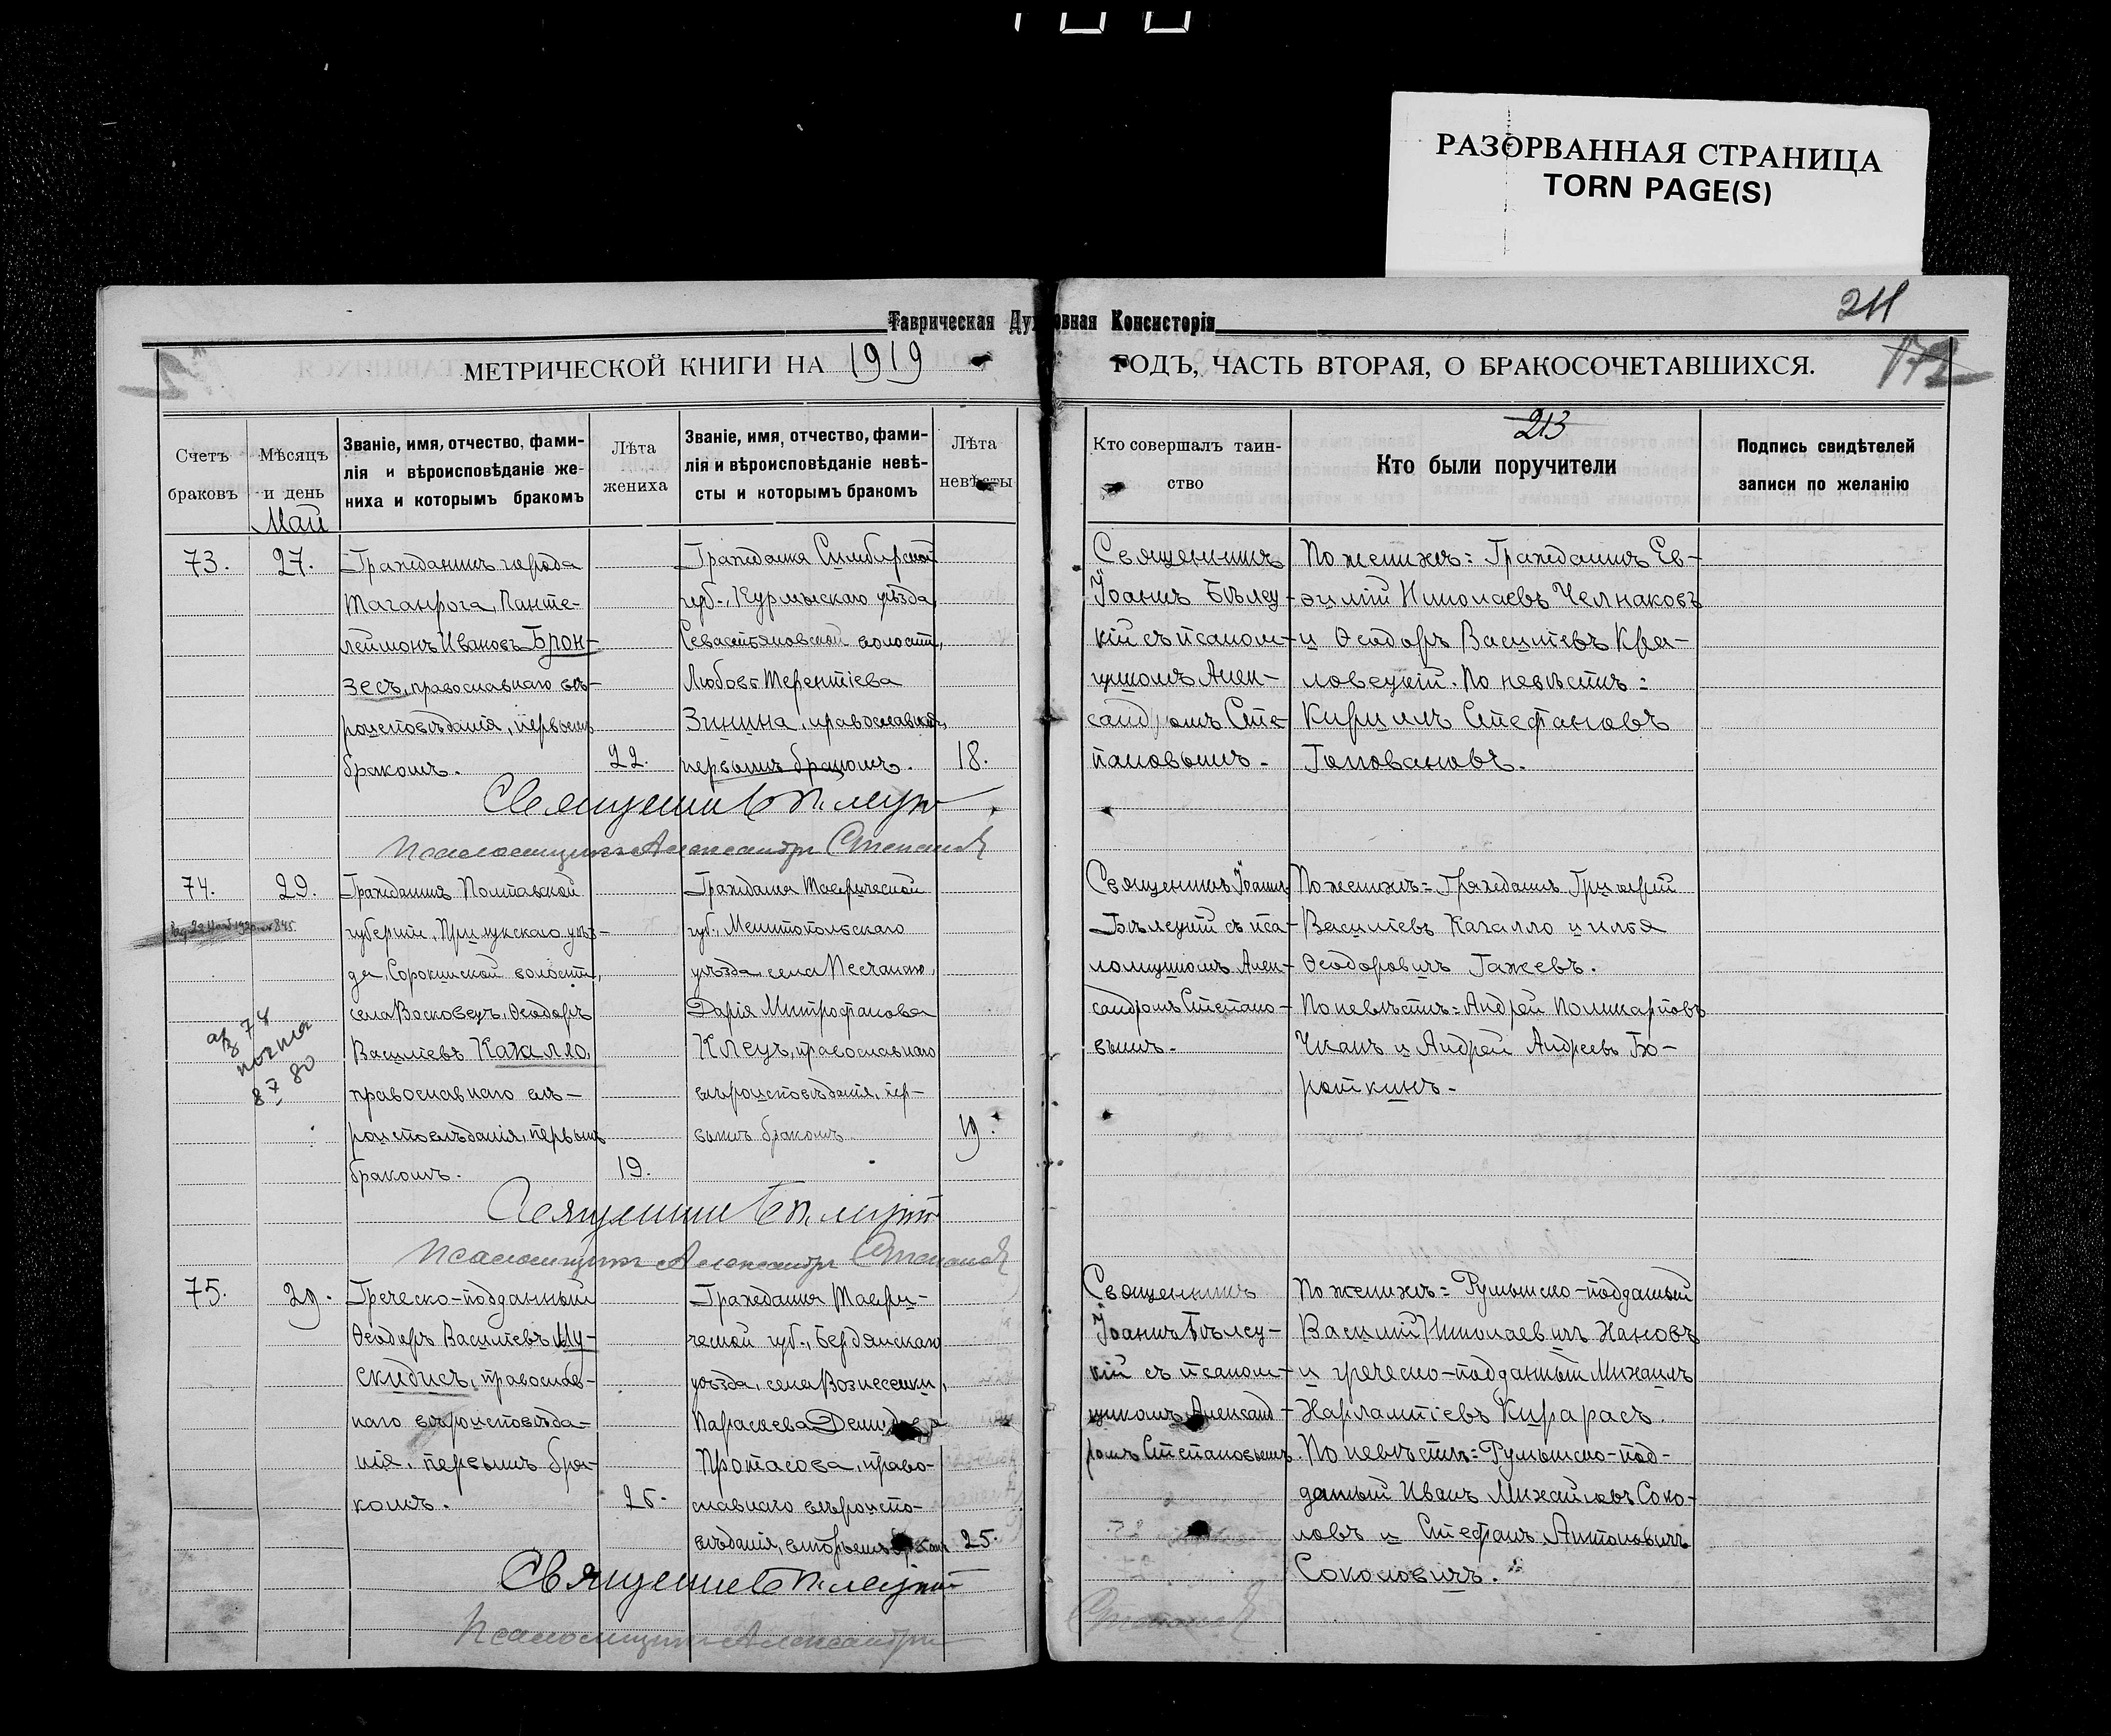 РАЗОРВАННАЯ СТРАНИЦА
TORN PAGE(S)
211
Таврическая Духовная Консисторія
МЕТРИЧЕСКОЙ КНИГИ НА 1919
ГОДЪ, ЧАСТЬ ВТОРАЯ, О БРАКОСОЧЕТАВШИХСЯ.
172
213
Счетъ
браковъ
Мѣсяцъ
и день
Званіе, имя, отчество, фами-
лія и вѣроисповѣданіе же-
ниха и которымъ бракомъ
Лѣта
жениха
Званіе, имя, отчество, фами-
лія и вѣроисповѣданіе невѣ-
сты и которымъ бракомъ
Лѣта
невѣсты
Кто совершалъ таин-
ство
Кто были поручители
Подпись свидѣтелей
записи по желанію
Май
73.
27.
Гражданинъ города
Таганрога, Панте-
леймонъ Ивановъ Брон-
зесъ, православнаго вѣ-
роисповѣданія, первымъ
бракомъ.
22.
Гражданка Симбирской
губ., Курмыскаго уѣзда,
волости,
Любовь Терентіева
Зинина, православной,
первымъ бракомъ.
18.
Священникъ
Іоаннъ Бѣлец-
кій съ псалом-
щикомъ Алек-
сандромъ Сте-
пановымъ.
По женихѣ: Гражданинъ Ев-
Николаевъ Челнаковъ
и Ѳеодоръ Василіевъ
По невѣстѣ:
Кириллъ Стефановъ
Головановъ.
Священникъ Бѣлецкій
Псаломщикъ Александръ Степановъ
74.
29.
Гражданинъ Полтавской
губерніи, Прилукскаго уѣз-
да, Сорокинской волости,
села Восковецъ, Ѳеодоръ
Василіевъ Кагалло,
православнаго вѣ-
роисповѣданія, первымъ
бракомъ.
19.
Гражданка Таврической
губ., Мелитопольскаго
уѣзда, села Песчанаго,
Дарія Митрофанова
Клецъ, православнаго
вѣроисповѣданія, пер-
вымъ бракомъ
19.
Священникъ Іоаннъ
Бѣлецкій съ пса-
ломщикомъ Алек-
сандромъ Степано-
вымъ.
По женихѣ: Гражданинъ Григорій
Василіевъ Кагалло и Илья
Ѳеодоровичъ Гажевъ.
По невѣстѣ: Андрей Поликарповъ
Чканъ и Андрей Андреевъ Бо-
роткинъ.
Священникъ Бѣлецкій
Псаломщикъ Александръ Степановъ
75.
29.
Греческо-подданный
Ѳеодоръ Василіевъ Му-
скидисъ, православ-
наго вѣроисповѣда-
нія, первымъ бра-
комъ.
26.
Гражданка Таври-
ческой губ., Бердянскаго
уѣзда, села Вознесенки,
Параскева
Протасова, право-
славнаго вѣроиспо-
вѣданія, вторымъ бракомъ
25.
Священникъ
Іоаннъ Бѣлец-
кій съ псалом-
щикомъ Александ-
ромъ Степановымъ.
По женихѣ: Румынско-подданный
Василій Николаевичъ Хановъ
и греческо-подданный Михаилъ
Харлампіевъ Кирарасъ.
По невѣстѣ: Румынско-под-
данный Иванъ Михайловъ Соко-
ловъ и Стефанъ Антоновичъ
Соколовичъ.
Священникъ Бѣлецкій
Псаломщикъ Александръ
Степановъ